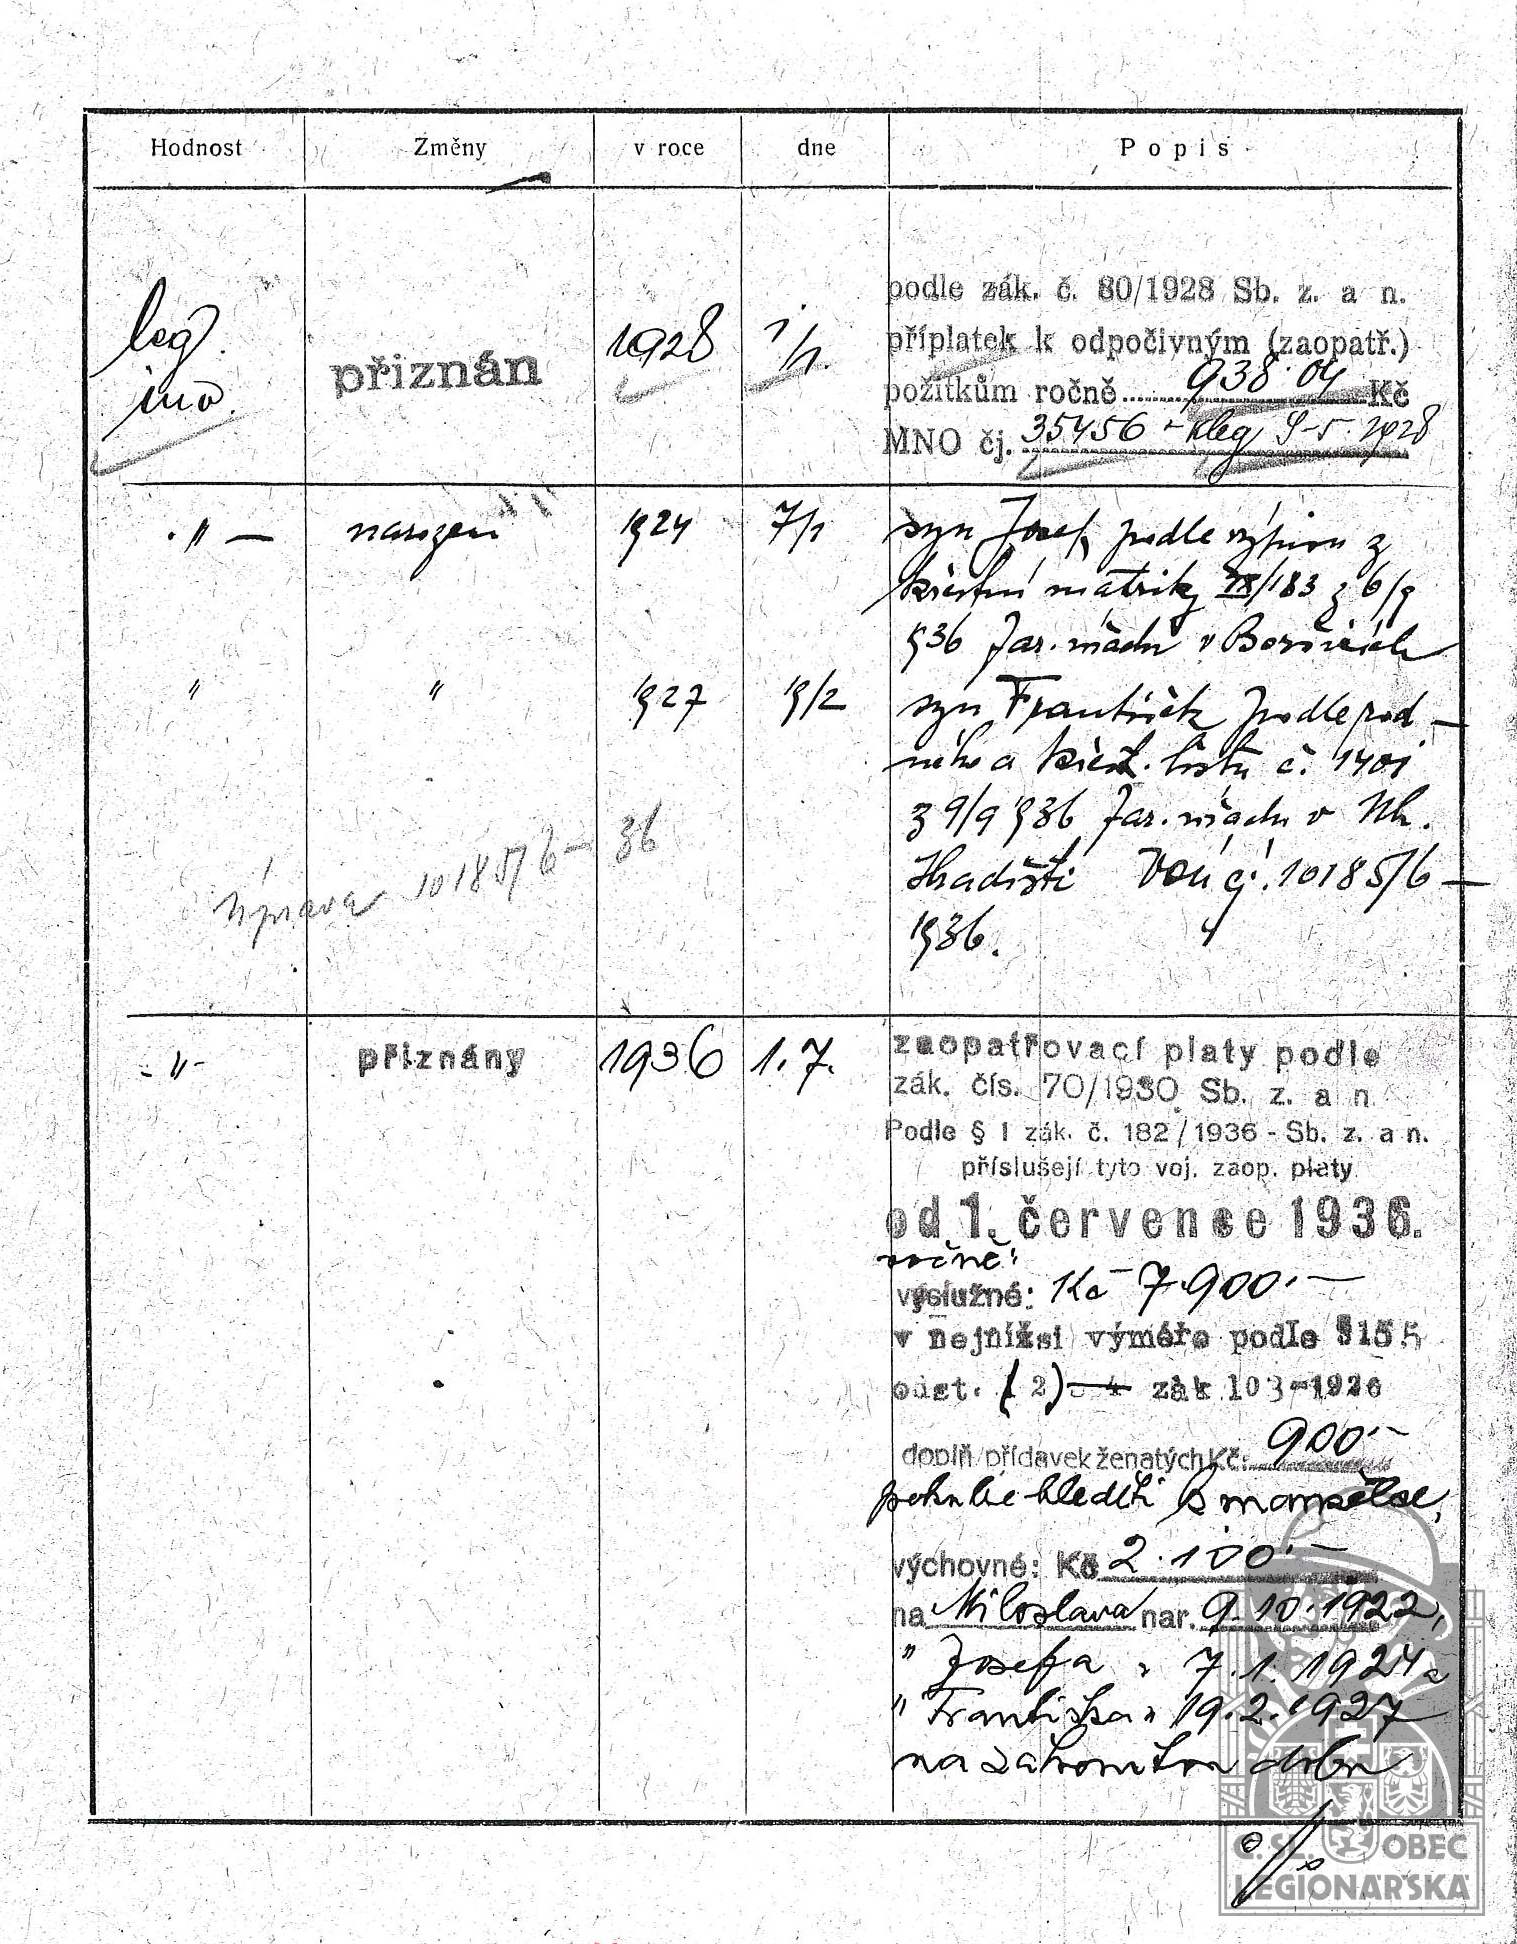 Hodnost Změny v roce dne Popis
leg. inv. přiznán 1928 1/1.
podle zák. č. 80/1928 Sb. z. a n.
příplatek k odpočivným (zaopatř.)
požitkům ročně 938·04 Kč
MNO čj. 35456 - kleg 1928
" — narozen 1924 7/1 syn Josef, podle výpisu z
křestní matriky /183 z 6/9
936 far. úřadu v Boršicích
" " 1927 19/2 syn František podle rod-
ného a křest. listu č. 1401
z 9/9 1936 far. úřadu v Uh.
Hradišti VDÚ čj. 10185/6 —
1936.
úprava 10185/6 - 36
- " - přiznány 1936 1.7. zaopatřovací platy podle
zák. čís. 70/1930 Sb. z. a n.
Podle § 1 zák. č. 182/1936 - Sb. z. a n.
příslušejí tyto voj. zaop. platy
od 1. července 1936.
ročně:
výslužné: Kč 7.900.—
v nejnižsí výměře podle §155
odst. (2) zák 103-1926
doplň přídavek ženatých Kč: 900·-
hleděti k manželce,
výchovné: Kč 2.100.—
na Miloslava nar. 9.10.1922,
" Josefa " 7.1.1924 a
" Františka " 19.2.1927
na zákonitou dobu
Č. SL. OBEC
LEGIONÁŘSKÁ